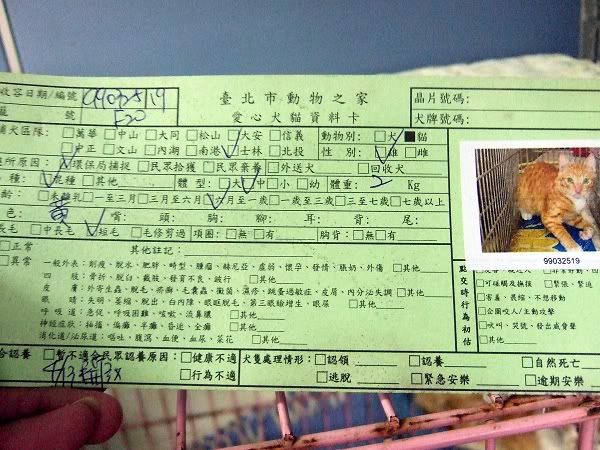 收容日期/編號 99032519 臺北市動物之家 晶片號碼:
區 號 E20 愛心犬貓資料卡 犬牌號碼:
捕犬區隊: □萬華 □中山 □大同 □松山 □大安 □信義 動物別: □犬 ■貓
□中正 □文山 □內湖 □南港 ☑士林 □北投 性 別: ☑雄 □雌
原因: ☑環保局捕捉 □民眾拾獲 □民眾棄養 □外送犬 □回收犬
種: ☑混種 □其他 體 型: □大 ☑中 □小 □幼 體重: 2 Kg
齡: □未離乳 □一至三月 □三月至六月 ☑六月至一歲 □一歲至三歲 □三至七歲 □七歲以上
色: 黃 嘴: 頭: 胸: 腳: 耳: 背: 尾:
長毛 □中長毛 ☑短毛 □毛修剪過 項圈: □無 □有 胸背: □無 □有
99032519
□正常 其他註記:
□異常 一般外傷: 削瘦、脫水、肥胖、畸型、腫瘤、赫尼亞、虛弱、懷孕、發情、脹奶、外傷 □其他
四 肢: 骨折、脫臼、截肢、發育不良、跛行 □其他
皮 膚: 外寄生蟲、脫毛、疥癬、毛囊蟲、黴菌、濕疹、跳蚤過敏症、皮屑、內分泌失調 □其他
眼 睛: 失明、萎縮、脫出、白內障、眼眶脫毛、第三眼瞼增生、眼屎 □其他
呼吸道: 急促、呼吸困難、咳嗽、流鼻膿 □其他
神經症狀: 抽搐、偏癱、半癱、昏迷、全癱 □其他
消化道/泌尿道: 嘔吐、腹瀉、血便、血尿、菜花 □其他
點交時行為初估
□可碰觸及撫摸 □緊張、緊迫
□害羞、畏縮、不想移動
□企圖咬人/主動攻擊
□吠叫、哭號、發出威脅聲
□其他
合認養 □暫不適合民眾認養原因: □健康不適 犬隻處理情形: □認領 □認養 □自然死亡
□行為不適 □逃脫 □緊急安樂 □逾期安樂